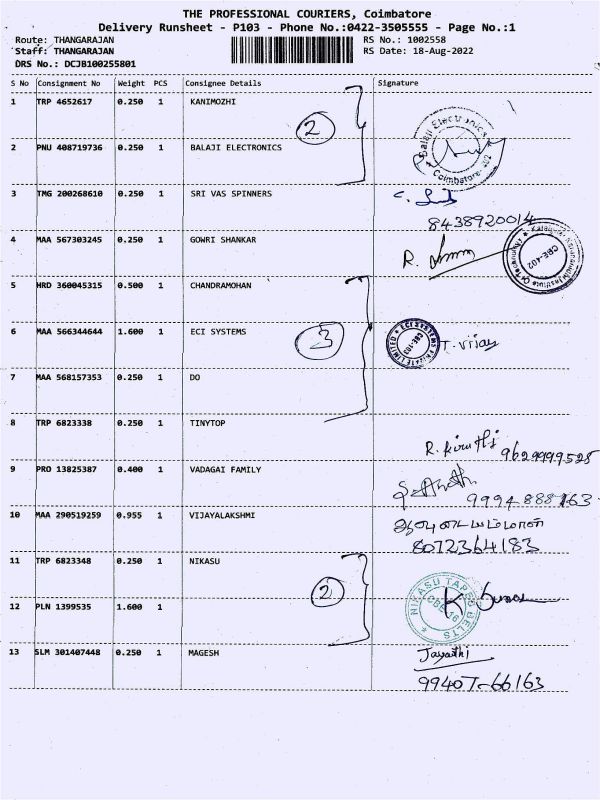 THE PROFESSIONAL COURIERS, Coimbatore
Delivery Runsheet - P103 - Phone No.:0422-3505555 - Page No.:1
Route: THANGARAJAN RS No.: 1002558
Staff: THANGARAJAN RS Date: 18-Aug-2022
DRS No.: DCJB100255801
S No Consignment No Weight PCS Consignee Details Signature
1 TRP 4652617 0.250 1 KANIMOZHI
2
Balaji Electronics
Coimbatore - 402
2 PNU 408719736 0.250 1 BALAJI ELECTRONICS
3 TMG 200268610 0.250 1 SRI VAS SPINNERS
8438920014
4 MAA 567303245 0.250 1 GOWRI SHANKAR
R.
Institute Of Technology
CBE-402
5 HRD 360045315 0.500 1 CHANDRAMOHAN
6 MAA 566344644 1.600 1 ECI SYSTEMS
3
ECI SYSTEMS PRIVATE LIMITED
CBE-103
T. vijay
7 MAA 568157353 0.250 1 DO
8 TRP 6823338 0.250 1 TINYTOP
R. kiruthi 9629999528
9 PRO 13825387 0.400 1 VADAGAI FAMILY
9994888163
10 MAA 290519259 0.955 1 VIJAYALAKSHMI
8072364183
11 TRP 6823348 0.250 1 NIKASU
2
NIKASU TAPES BELTS
CBE-16
12 PLN 1399535 1.600 1
13 SLM 301407448 0.250 1 MAGESH
Jayanthi
99407-66163